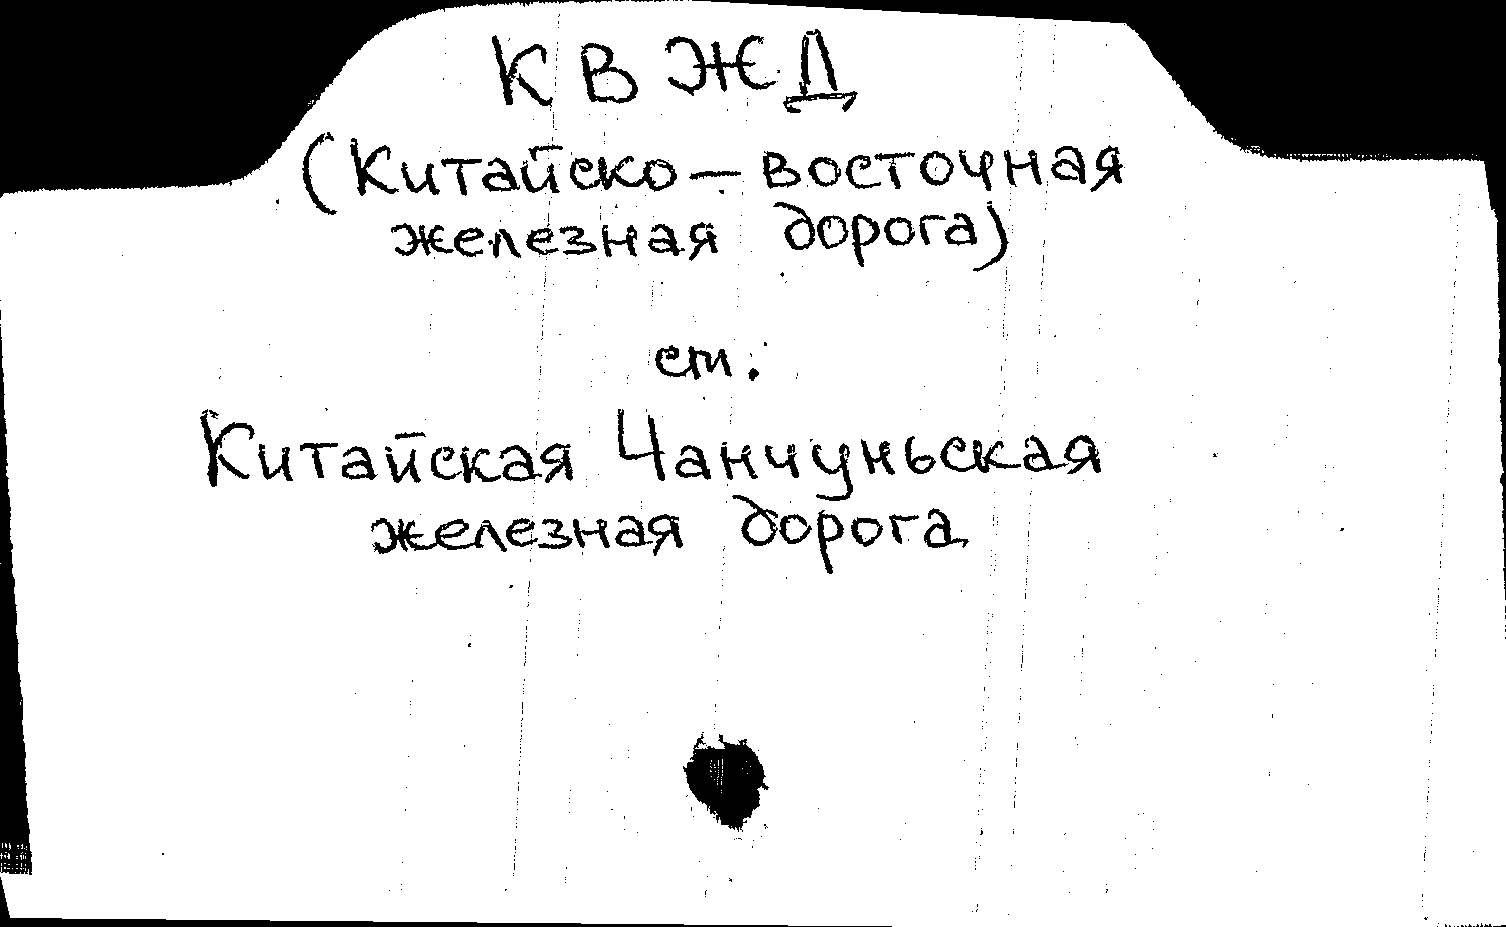 КВЖД
(Китайско-восточная
железная дорога)
см.
Китайская Чанчуньская
железная дорога